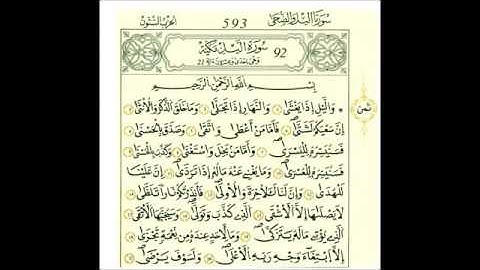 سورتا اليل والضحى 593 الحزب الستون
92 سورة اليل مكية
وهي إحدى وعشرون آية 21
بسم الله الرحمن الرحيم
ثمن
واليل إذا يغشى والنهار إذا تجلى وما خلق الذكر والأنثى
إن سعيكم لشتى فأما من أعطى واتقى وصدق بالحسنى
فسنيسره لليسرى وأما من بخل واستغنى وكذب بالحسنى
فسنيسره للعسرى وما يغني عنه ماله إذا تردى إن علينا
للهدى وإن لنا للآخرة والأولى فأنذرتكم نارا تلظى
لا يصلاها إلا الأشقى الذي كذب وتولى وسيجنبها الأتقى
الذي يؤتي ماله يتزكى وما لأحد عنده من نعمة تجزى
إلا ابتغاء وجه ربه الأعلى ولسوف يرضى